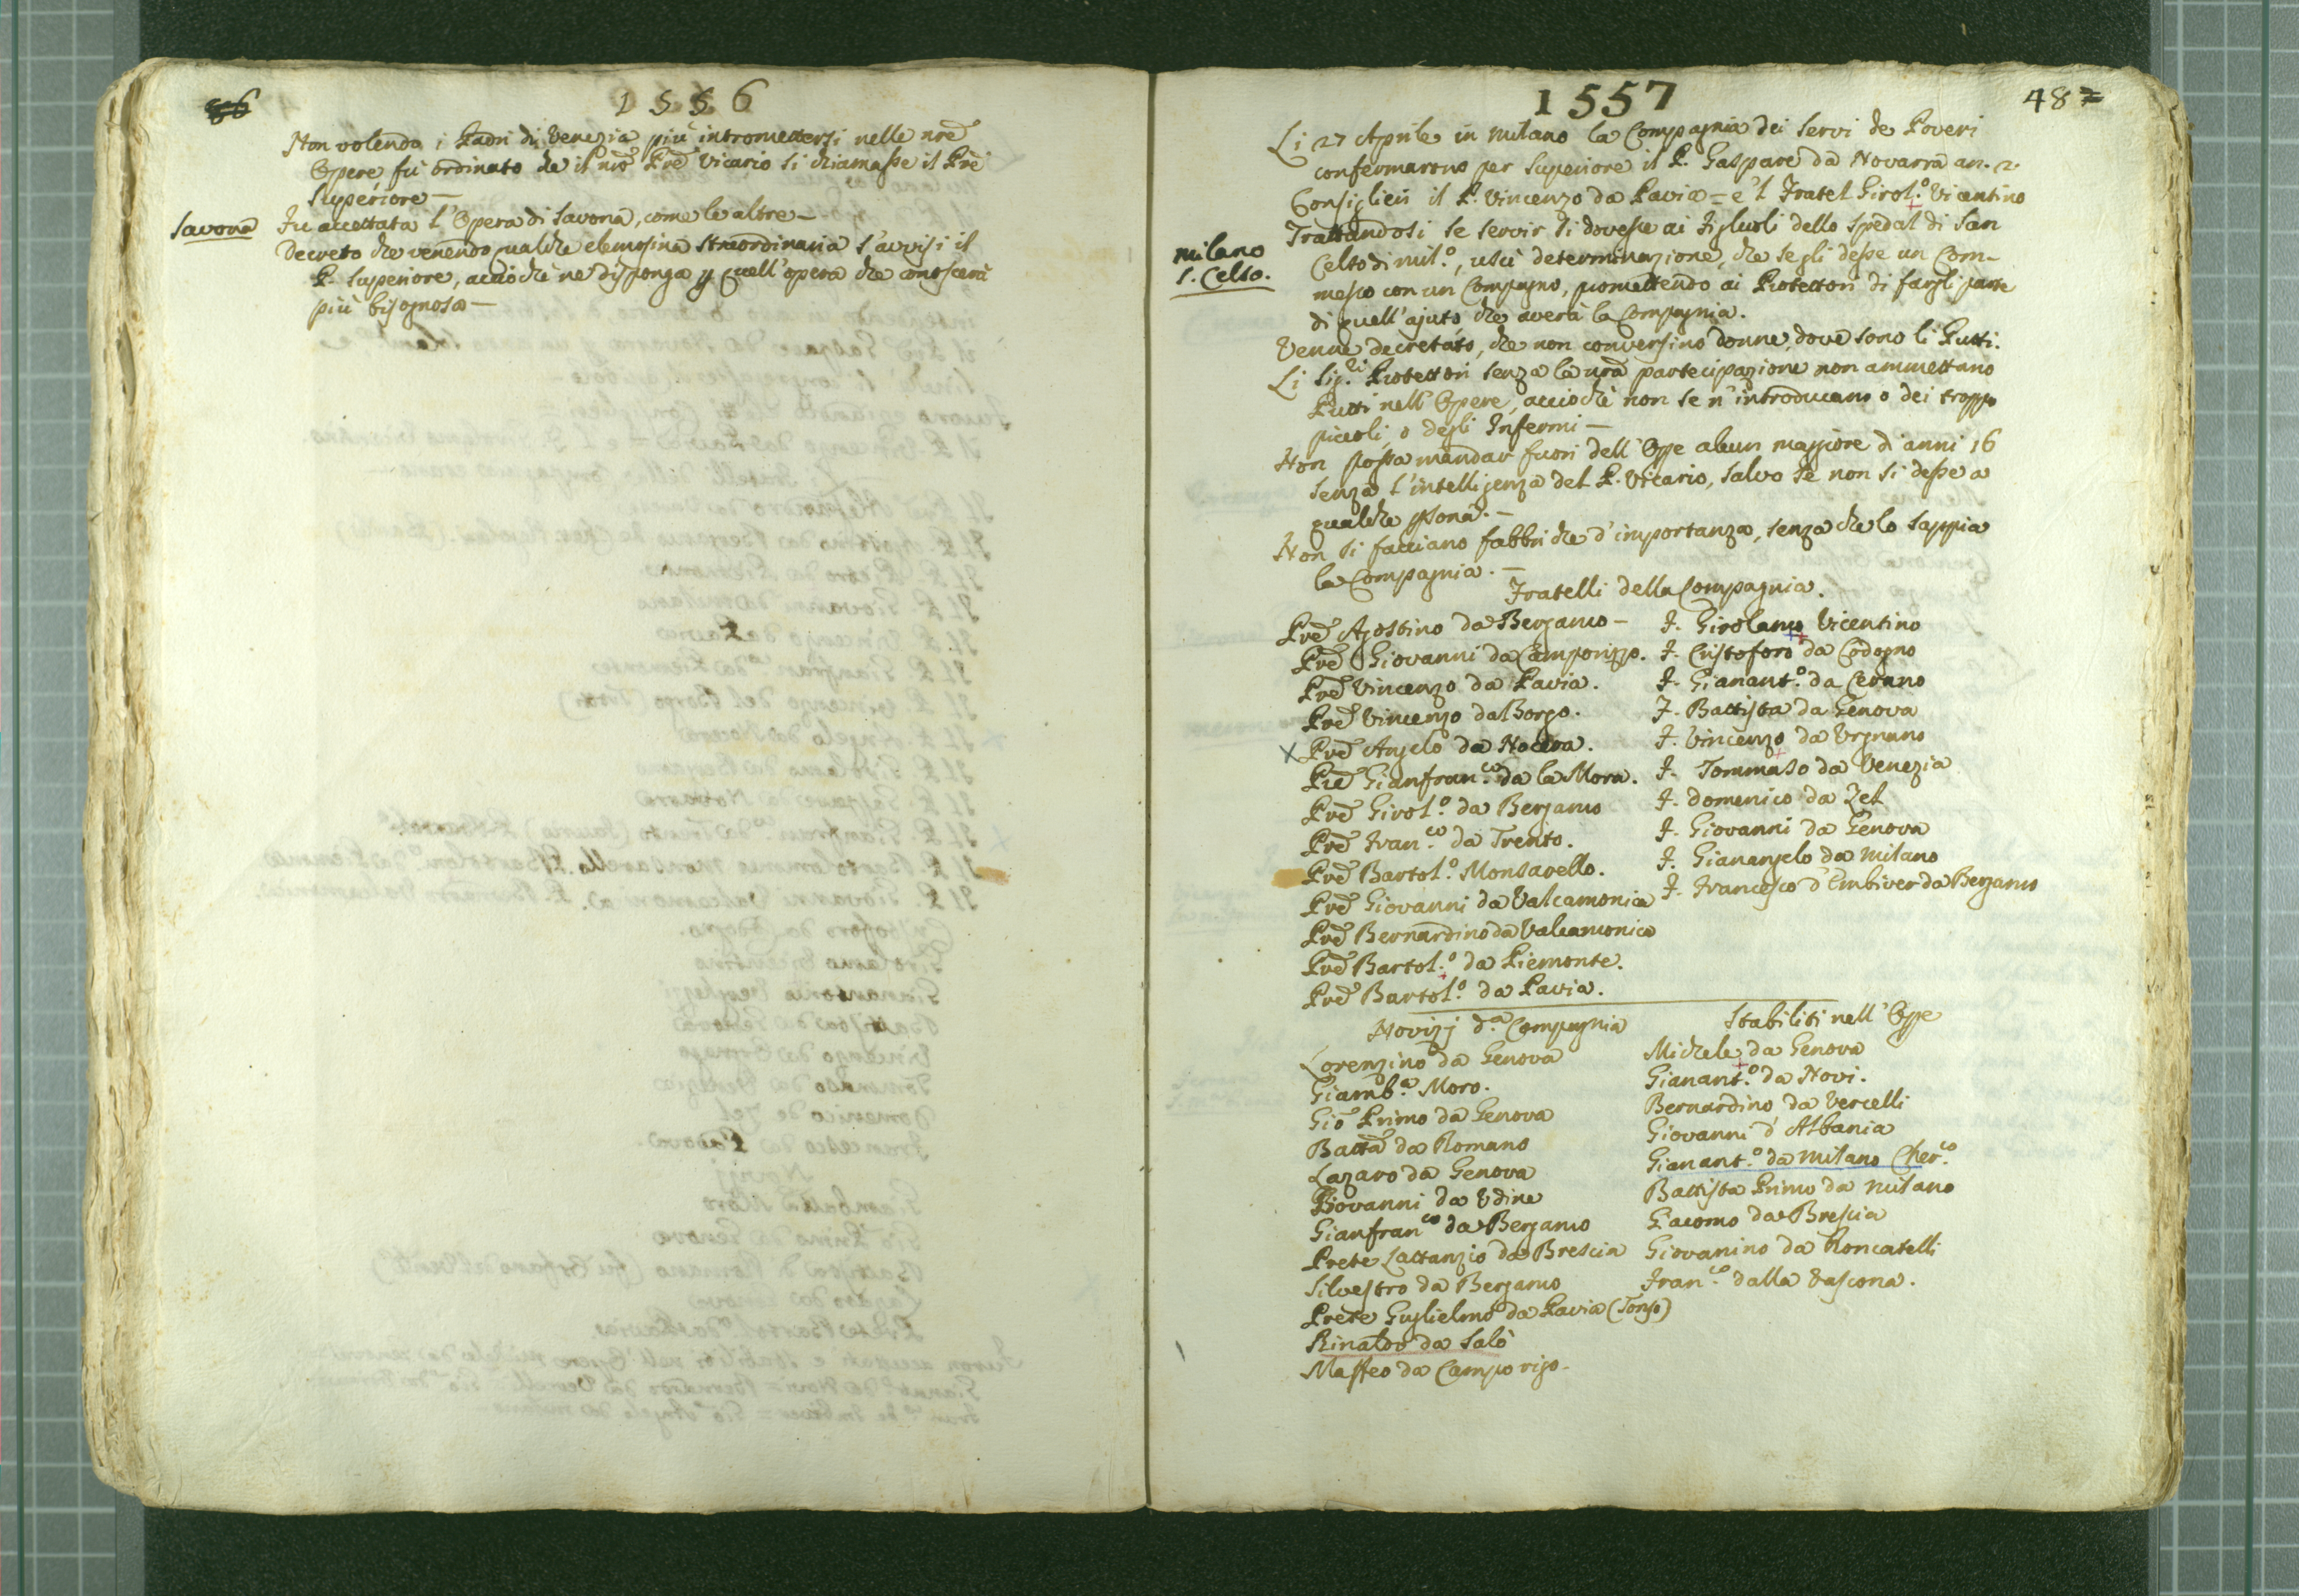 1556
Non volendo i Padri di Venezia più intromettersi nelle nrẽ
Opere fù ordinato che il nrõ Prẽ Vicario si chiamasse il Prẽ
Superiore —
Savona
Fu accettata l'Opera di Savona, come le altre —
Decreto che venendo qualche elemosina straordinaria s'avvisi il
P. Superiore, acciochè ne disponga p quell'opera che conoscerà
più bisognosa —
1557
48
Li 27 Aprile in Milano la Compagnia dei Servi de Poveri
confermarono per Superiore il P. Gaspare da Novarra an. 2.
Consiglieri il P. Vincenzo da Pavia = e 'l Fratel Girol.º Vicentino
Milano
S. Celso.
Trattandosi se servir si dovesse ai Figluoli dello Spedal di San
Celso di Mil.º, uscì determinazione, che se gli desse un Com-
messo con un Compagno, promettendo ai Protettori di fargli parte
di quell'ajuto che averà la Compagnia.
Venne decretato, che non conversino donne, dove sono li Putti.
Li Sig.ri Protettori senza la nrã partecipazione non ammettano
Putti nell'Opere, acciochè non se n'introducano o dei troppo
piccoli, o degli Infermi —
Non possa mandar fuori dell'Ope alcun maggiore d'anni 16
senza l'intelligenza del P. Vicario, salvo se non si desse a
qualche psona. —
Non si facciano fabbriche d'importanza, senza che lo sappia
la Compagnia. —
Fratelli della Compagnia.
Prẽ Agostino da Bergamo —
Prẽ Giovanni da Camporizzo.
Prẽ Vincenzo da Pavia.
Prẽ Vincenzo dal Borgo.
X Prẽ Angelo da Nocera.
Prẽ Gianfran.co da la Mora.
Prẽ Girol.º da Bergamo
Prẽ Fran.co da Trento.
Prẽ Bartol.º Monsavello.
Prẽ Giovanni da Valcamonica
Prẽ Bernardino da Valcamonica
Prẽ Bartol.º da Piemonte.
Prẽ Bartol.º da Pavia.
F. Girolamo Vicentino
F. Cristoforo da Codogno
F. Gianant.º da Cerano
F. Battista da Genova
F. Vincenzo da Urgnano
F. Tommaso da Venezia
F. Domenico da Zel
F. Giovanni da Genova
F. Gianangelo da Milano
F. Francesco d'Embiver da Bergamo
Novizj d.a Compagnia
Lorenzino da Genova
Giamb.a Moro.
Giõ Primo da Genova
Battã da Romano
Lazaro da Genova
Giovanni da Udine
Gianfran.co da Bergamo
Prete Lattanzio da Brescia
Silvestro da Bergamo
Prete Guglielmo da Pavia (Tonso)
Rinaldo da Salò
Maffeo da Camporigo.
Stabiliti nell'Ope
Michele da Genova
Gianant.º da Novi.
Bernardino da Vercelli
Giovanni d'Albania
Gianant.º da Milano Cher.co
Battista Primo da Milano
Giacomo da Brescia
Giovanino da Roncatelli
Fran.co dalla Vascona.